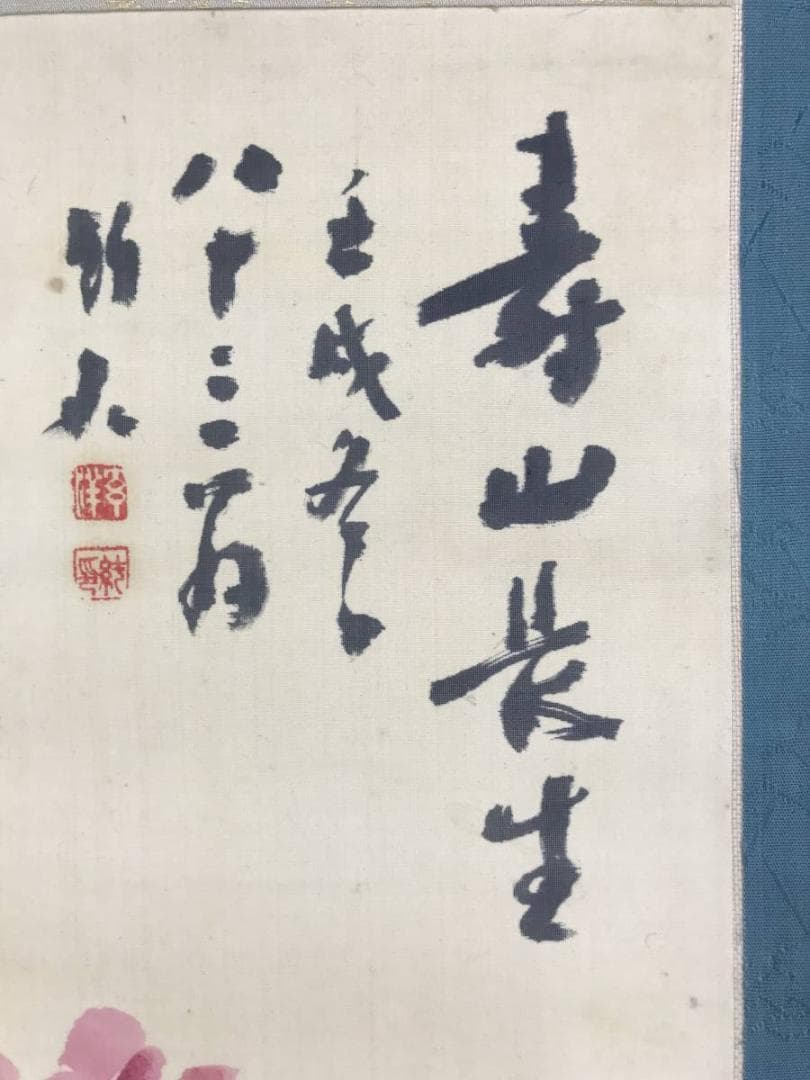 寿山長生
壬戌冬
八十三翁